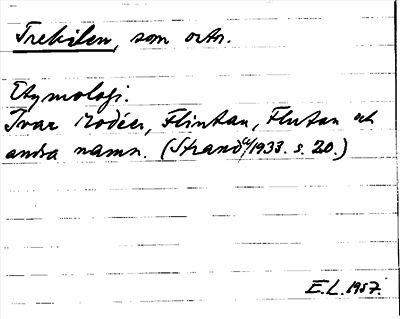 Trekilen, som ortn.
Etymologi.
Ivar Modéer, Flintan, Flutan och
andra namn. (Strand /1933. s. 20.)
E.L. 1957.